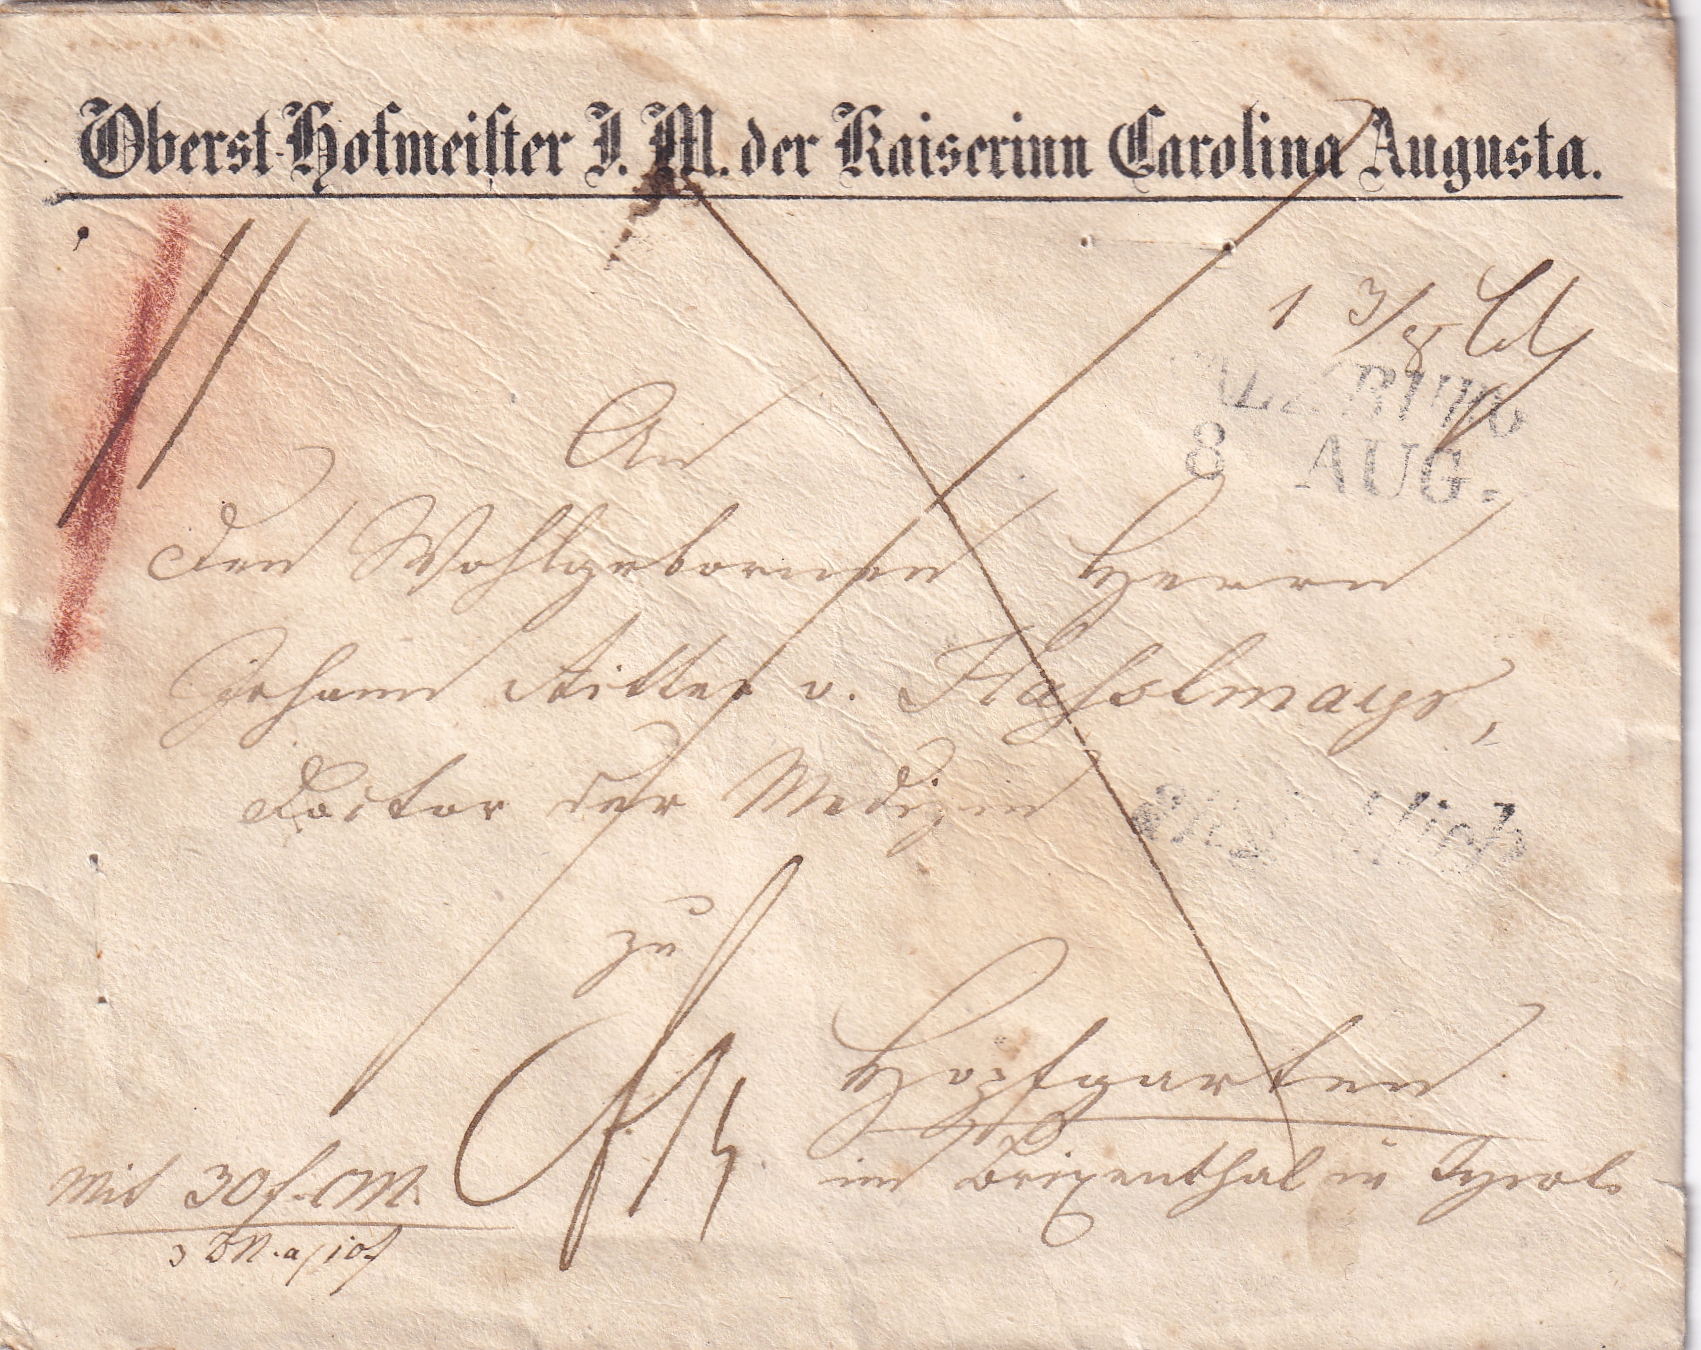 Oberst-Hofmeister I. M. der Kaiserinn Carolina Augusta.
1 3/8 Lth
SALZBURG
8 AUG.
An
den Wohlgebornen Herrn
Johann Ritter v. Hasslmayr,
Doctor der Medizin
zu
Hopfgarten
im Brixenthal in Tyrol.
Mit 30 f. CM.
3 BN. a / 10 f